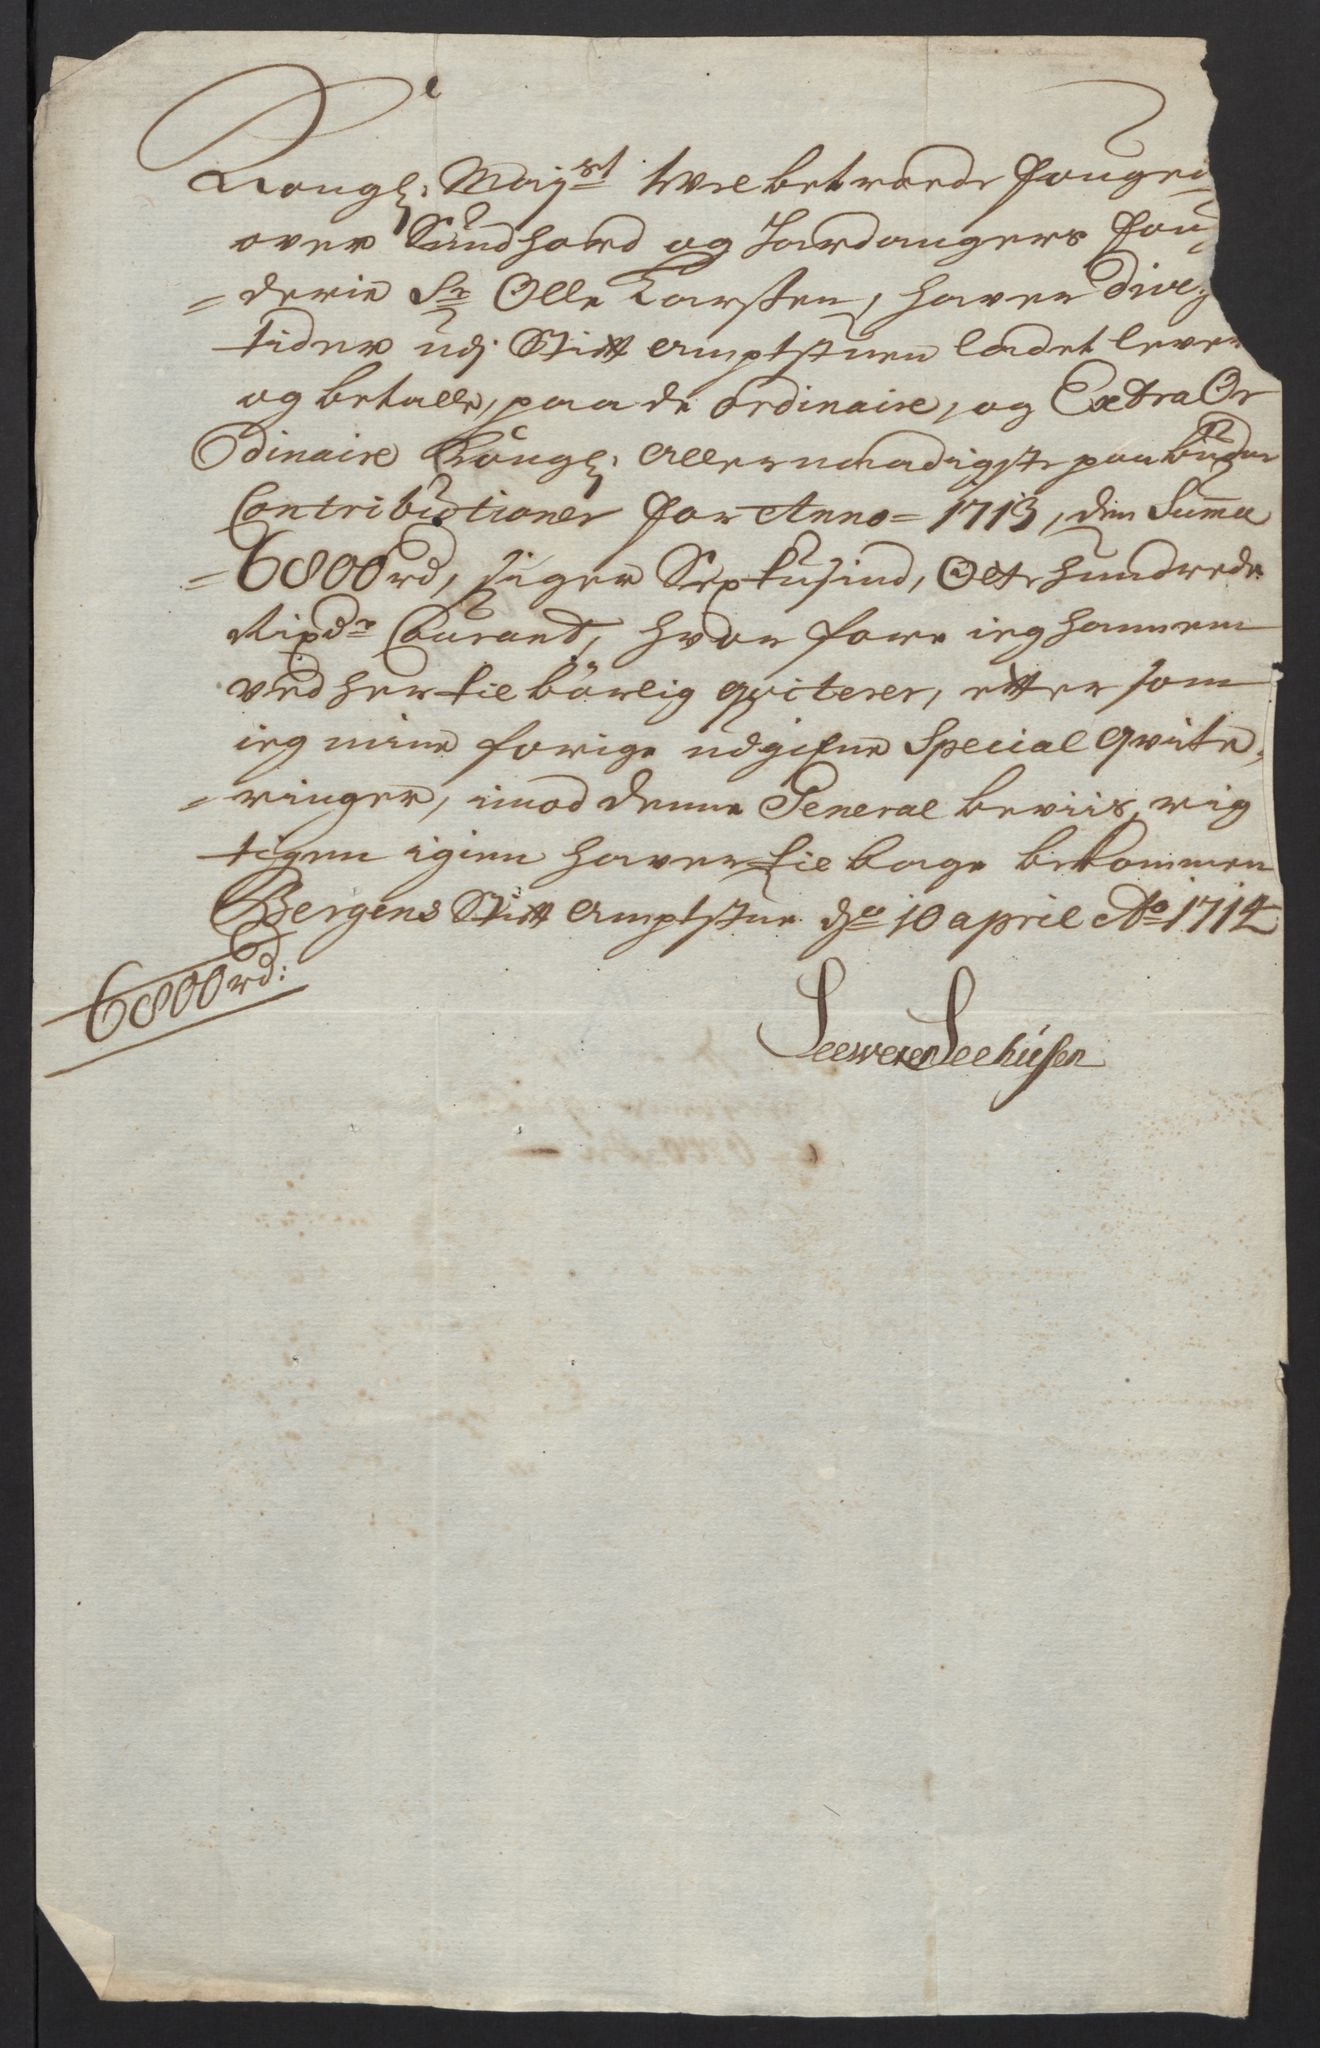 Kongl: Mayst velbetroede Fouged
over Sundhord og Hardangers Fou
=derie Sr Olle Larssen, haver Diver
tider udj Stift Amptstuen ladet lever
og betalle, paa de ordinaire, og Extra Or
dinaire Kongl: Allernaadigste paabudne
Contributioner for Anno= 1713, den Summa
=6800rd, siger Sex tusind, Otte hundrede
Rixdr Courant, hvor fore ieg hannem
ved her tilbörlig qviterer, efter som
ieg mine forige udgifne Special Qvite,
=ringer, imod denne General beviis, rig
tigen igien haver tilbage bekommen
Bergens Stift Amptstue dn 10 april Ao 1714
6800rd:
Seeweren Seehusen